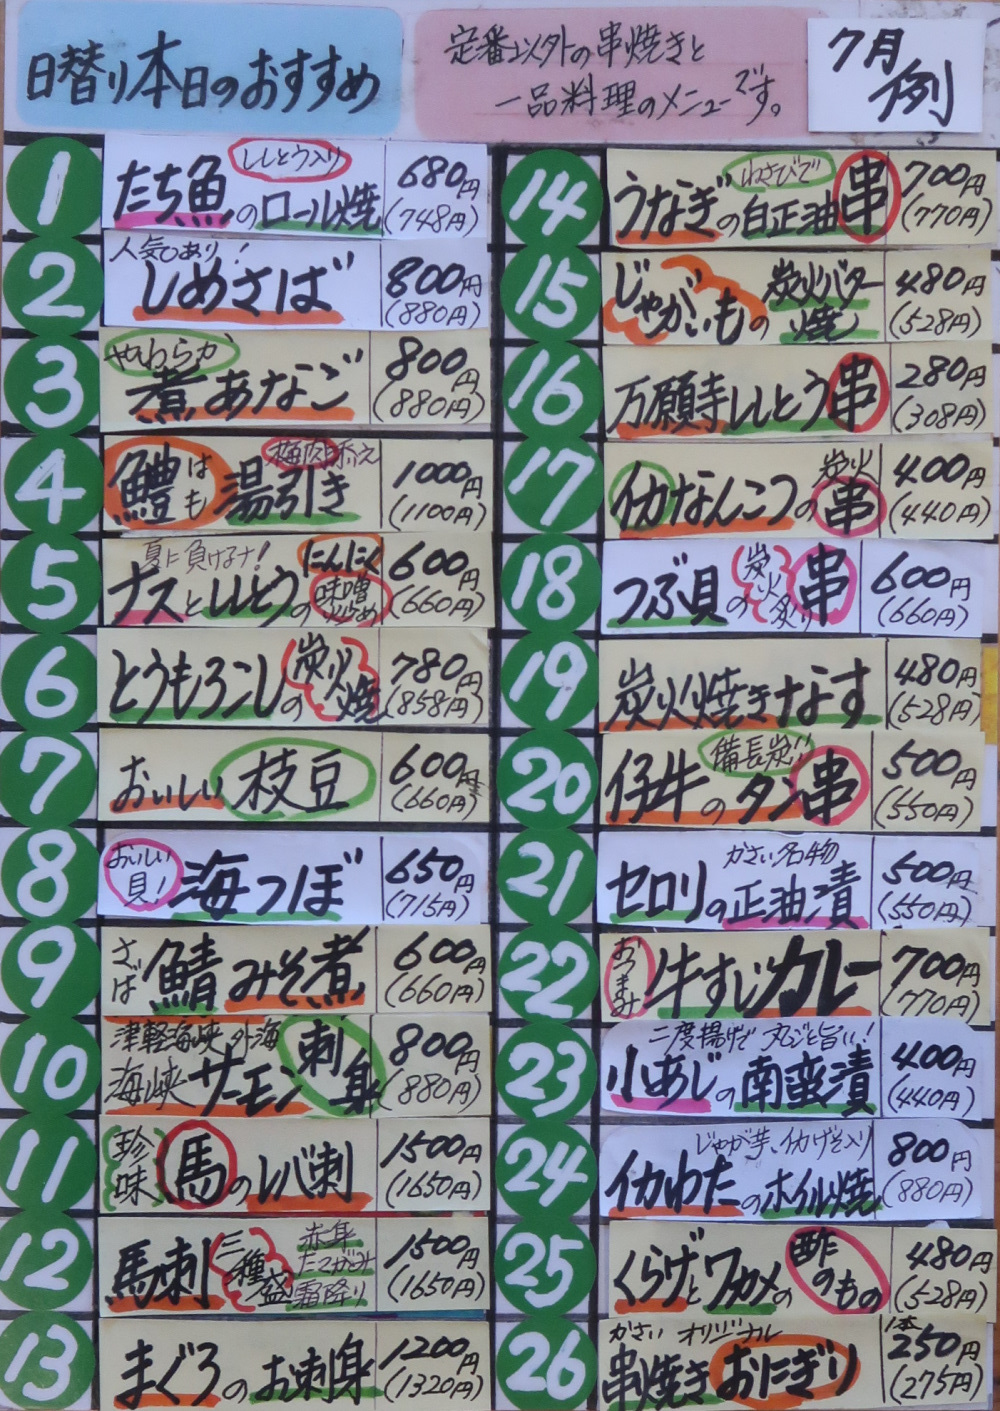 日替り本日のおすすめ
定番以外の串焼きと
一品料理のメニューです。
7月
例
1
ししとう入り
たち魚のロール焼
680円
(748円)
2
人気ひあり!
しめさば
800円
(880円)
3
やわらか
煮あなご
800円
(880円)
4
鱧はも湯引き
梅肉添え
1000円
(1100円)
5
夏に負けるナ!
ナスとししとうのにんにく味噌炒め
600円
(660円)
6
とうもろこしの炭火焼
780円
(858円)
7
おいしい枝豆
600円
(660円)
8
おいしい貝!
海つぼ
650円
(715円)
9
さば
鯖みそ煮
600円
(660円)
10
津軽海峡外海
海峡サーモン刺身
800円
(880円)
11
珍味
馬のレバ刺
1500円
(1650円)
12
馬刺三種盛
赤身
たてがみ
霜降り
1500円
(1650円)
13
まぐろのお刺身
1200円
(1320円)
14
わさびで
うなぎの白正油串
700円
(770円)
15
じゃがいもの炭火バター焼
480円
(528円)
16
万願寺ししとう串
280円
(308円)
17
イカなんこつの炭火串
400円
(440円)
18
つぶ貝の炭火炙り串
600円
(660円)
19
炭火焼きなす
480円
(528円)
20
備長炭!!
仔牛のタン串
500円
(550円)
21
かさい名物
セロリの正油漬
500円
(550円)
22
おつまみ
牛すじカレー
700円
(770円)
23
二度揚げで丸ごと旨い!
小あじの南蛮漬
400円
(440円)
24
じゃが芋、イカげそ入り
イカわたのホイル焼
800円
(880円)
25
くらげとワカメの酢のもの
480円
(528円)
26
かさいオリジナル
串焼きおにぎり
1本
250円
(275円)